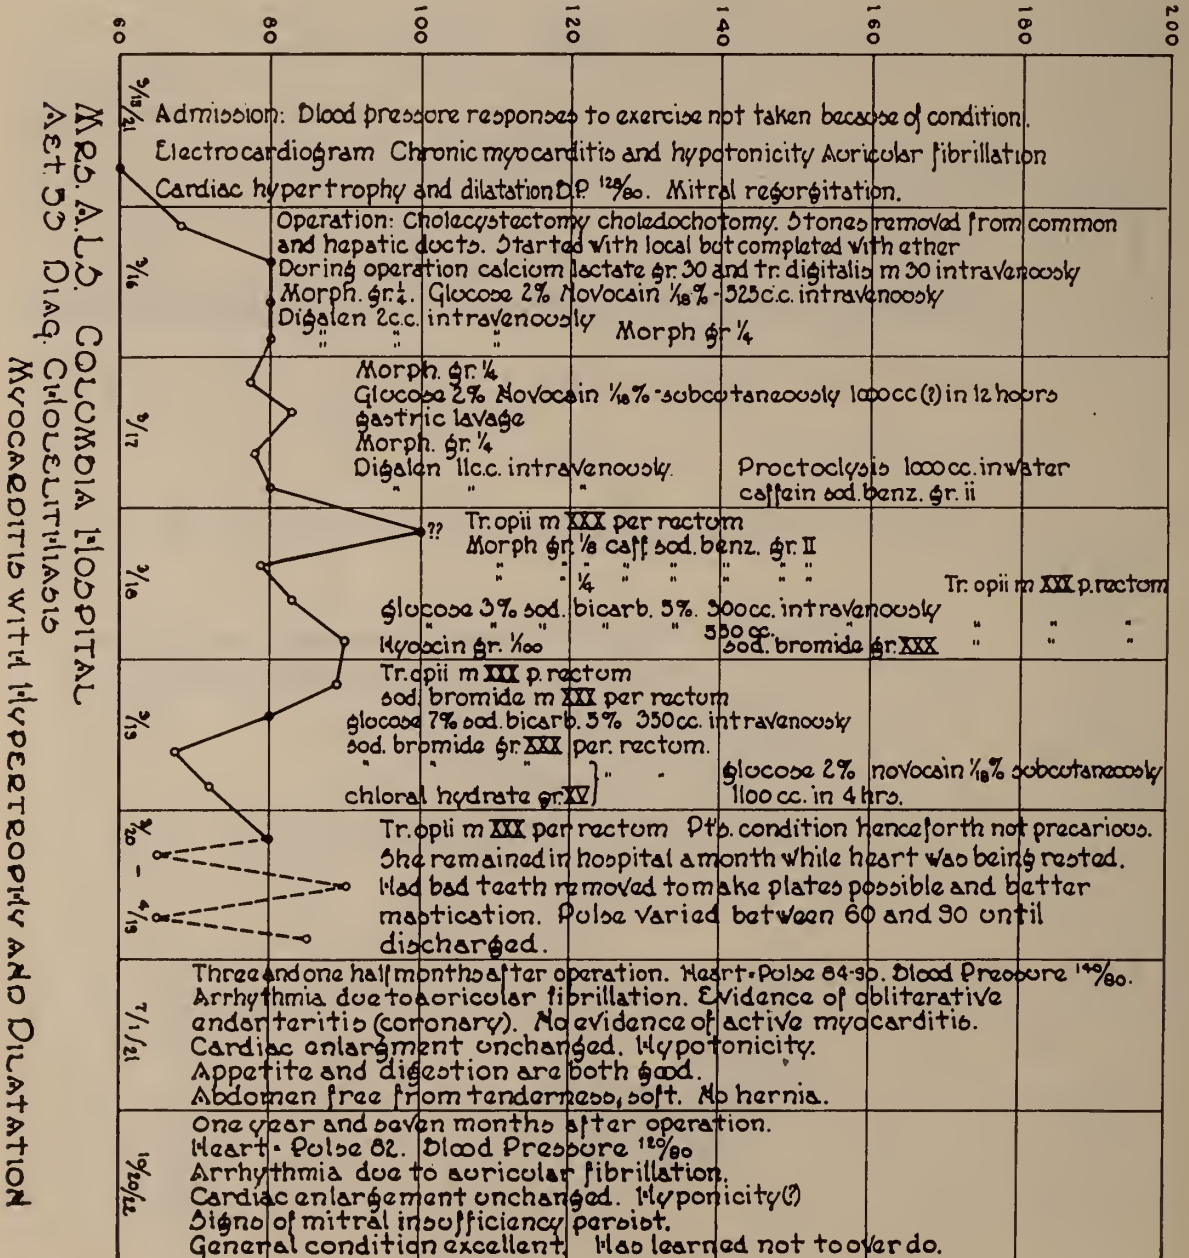 60 80 100 120 140 160 180 200
3/15/21
Admission: Blood pressure responses to exercise not taken because of condition.
Electrocardiogram Chronic myocarditis and hypotonicity Auricular fibrillation
Cardiac hypertrophy and dilatation B.P. 128/80. Mitral regurgitation.
3/16
Operation: Cholecystectomy choledochotomy. Stones removed from common
and hepatic ducts. Started with local but completed with ether
During operation calcium lactate gr. 30 and tr. digitalis m 30 intravenously
Morph. gr. ¼. Glucose 2% Novocain 1/18% - 525 c.c. intravenously
Digalen 2c.c. intravenously
" " " Morph gr ¼
3/17
Morph. gr. ¼
Glucose 2% Novocain 1/18% - subcutaneously 1000cc (?) in 12 hours
gastric lavage
Morph. gr. ¼
Digalen 11c.c. intravenously. Proctoclysis 1000 cc. in water
" " " caffein sod. benz. gr. ii
3/18
??
Tr. opii m XXX per rectum
Morph gr. 1/8 caff. sod. benz. gr. II
" " ¼ " " " " " Tr. opii m XXX p. rectum
glucose 3% sod. bicarb. 5% 300cc. intravenously
" " " " 350 cc. " " " "
Hyoscin gr. 1/100 sod. bromide gr. XXX " " "
3/19
Tr. opii m XXX p. rectum
sod. bromide m XXX per rectum
glucose 7% sod. bicarb. 5% 350 cc. intravenously
sod. bromide gr. XXX per. rectum.
" " " } " " glucose 2% novocain 1/18% subcutaneously
chloral hydrate gr. XV } 1100 cc. in 4 hrs.
3/20 - 4/19
Tr. opii m XXX per rectum Pts. condition henceforth not precarious.
She remained in hospital a month while heart was being rested.
Had bad teeth removed to make plates possible and better
mastication. Pulse varied between 60 and 90 until
discharged.
7/1/21
Three and one half months after operation. Heart - Pulse 84-90. Blood Pressure 140/80.
Arrhythmia due to auricular fibrillation. Evidence of obliterative
endarteritis (coronary). No evidence of active myocarditis.
Cardiac enlargment unchanged. Hypotonicity.
Appetite and digestion are both good.
Abdomen free from tenderness, soft. No hernia.
10/20/22
One year and seven months after operation.
Heart - Pulse 82. Blood Pressure 120/80
Arrhythmia due to auricular fibrillation.
Cardiac enlargement unchanged. Hyponicity (?)
Signs of mitral insufficiency persist.
General condition excellent. Has learned not to over do.
Mrs. A.L.S. Columbia Hospital
Aet. 53 Diag. Cholelithiasis
Myocarditis with Hypertrophy and Dilatation